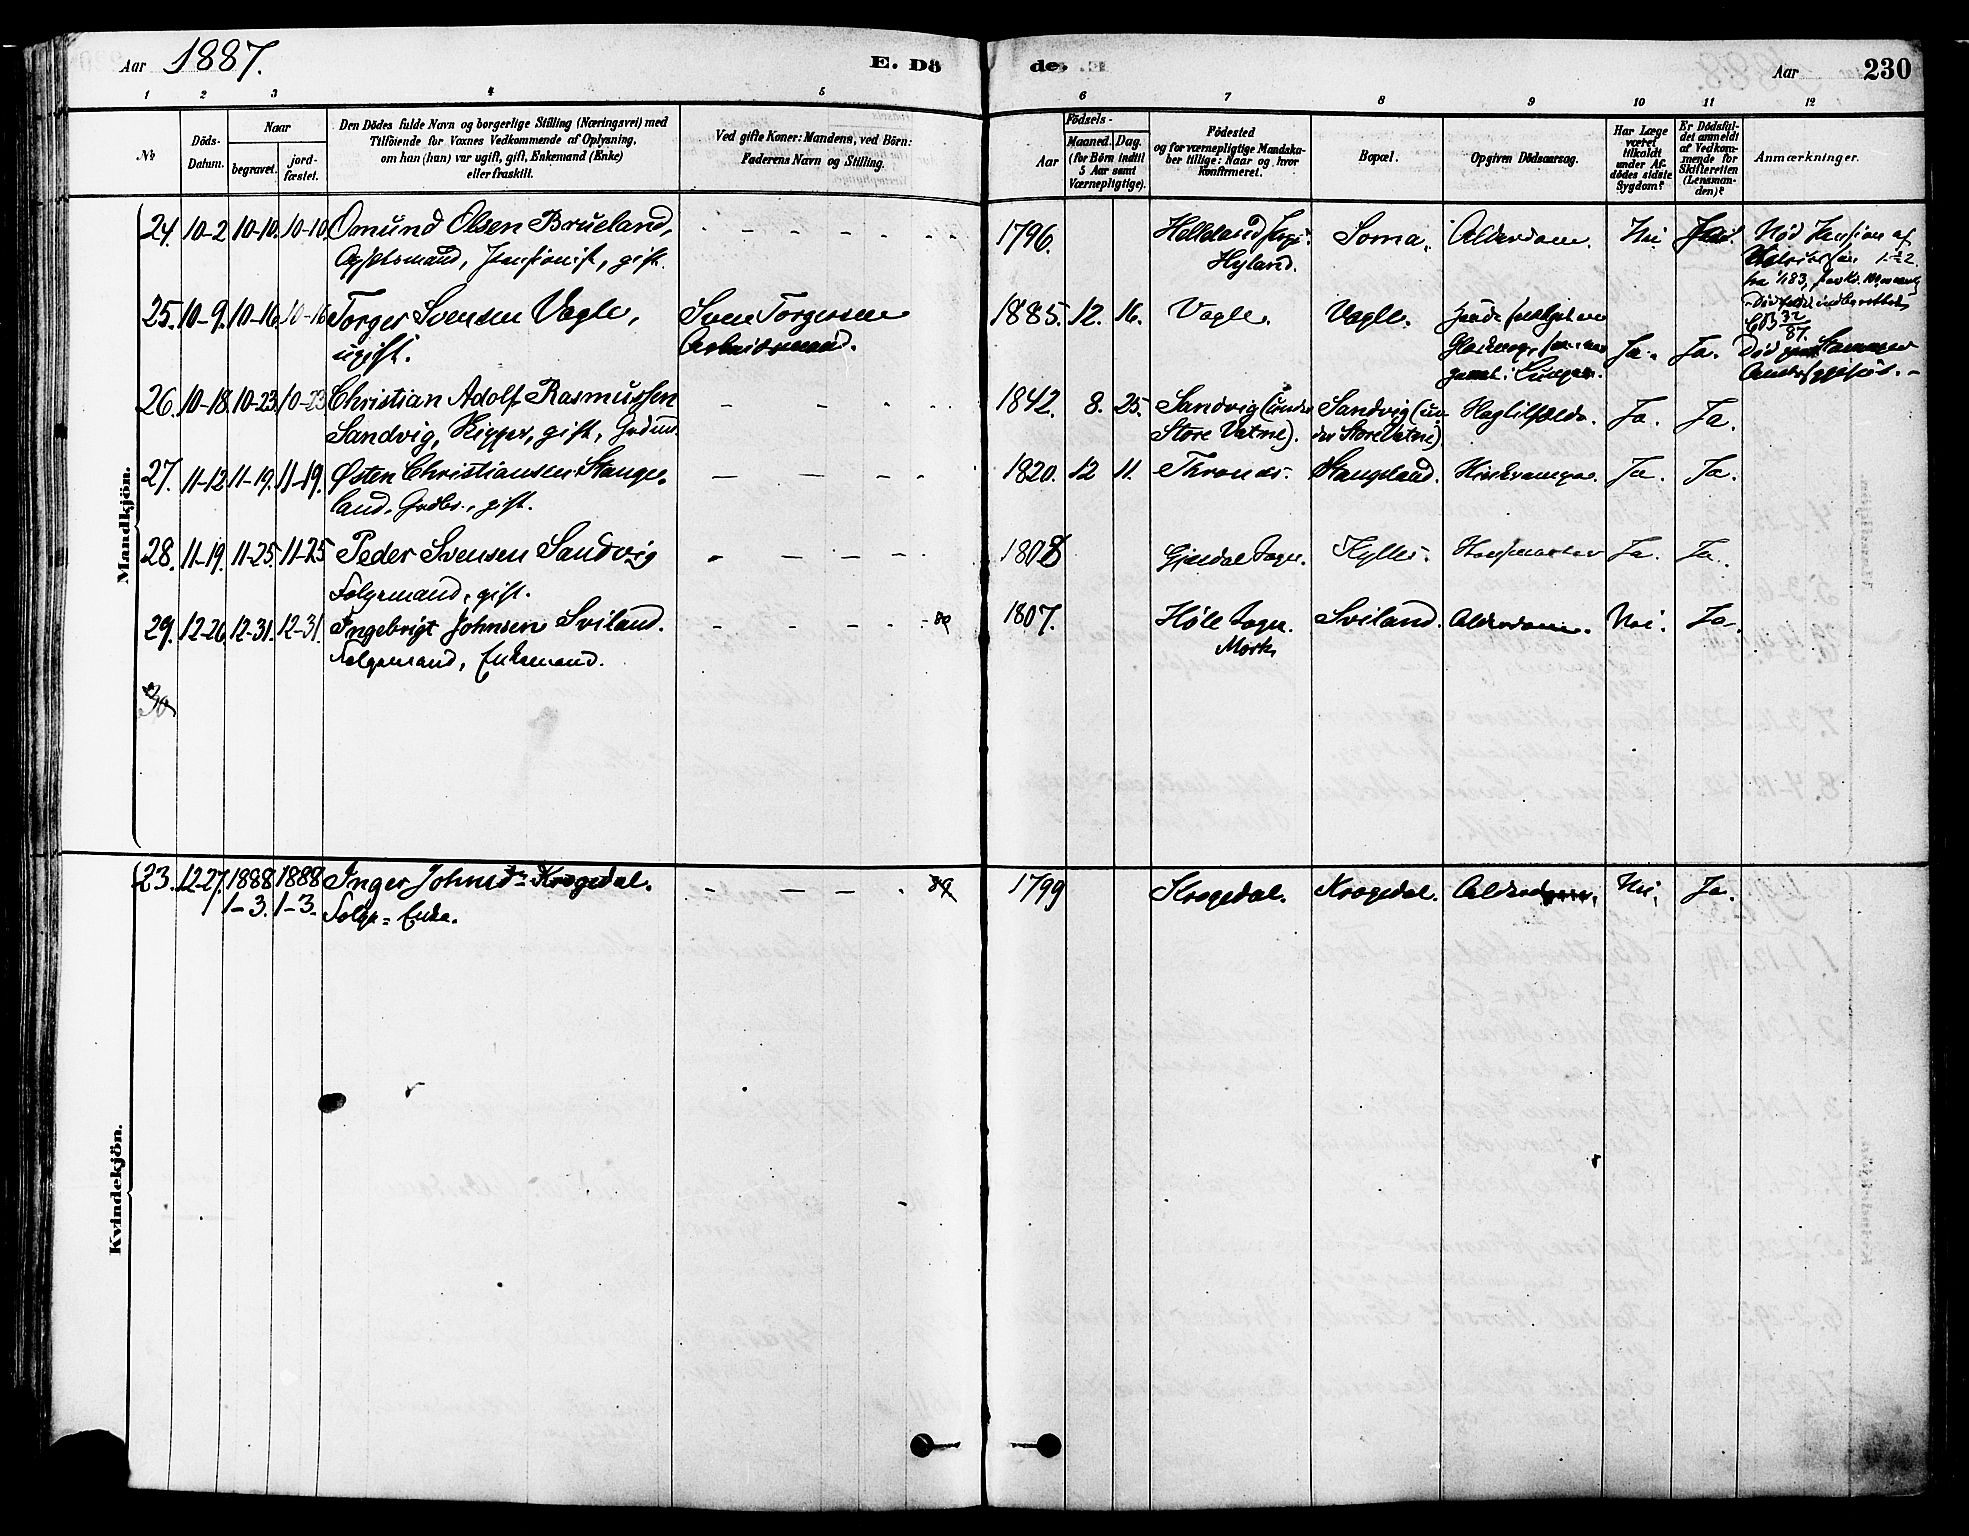 Aar 1887.
E. Döde.
Aar
230
1 2 3 4 5 6 7 8 9 10 11 12
№
Döds-
Datum.
Naar
begravet.
jord-
fæstet.
Den Dödes fulde Navn og borgerlige Stilling (Næringsvei) med
Tilföiende for Voxnes Vedkommende af Oplysning,
om han (hun) var ugift, gift, Enkemand (Enke)
eller fraskilt.
Ved gifte Koner: Mandens, ved Börn:
Faderens Navn og Stilling.
Födsels-
Aar
Maaned. Dag.
(for Börn indtil
5 Aar samt
Værnepligtige).
Födested
og for værnepligtige Mandska-
ber tillige: Naar og hvor
Konfirmeret.
Bopæl.
Opgiven Dödsaarsag.
Har Læge
været
tilkaldt
under Af-
dödes sidste
Sygdom?
Er Dödsfal-
det anmeldt
af Vedkom-
mende for
Skifteretten
(Lensman-
den)?
Anmærkninger.
Mandkjön.
24. 10-2 10-10. 10-10. Omund Olsen Brueland, 1796. Helleland Sogn. Soma. Alderdom. Nei Ja. Nød Pension af
Pensionist, gift. Hyland.
25. 10-9. 10-16. 10-16 Torger Svensen Vagle, Sven Torgersen 1885. 12. 16. Vagle. Vagle.
ugift. Arbeidsmand. Ja. Ja.
26. 10-18. 10-23. 10-23 Christian Adolf Rasmussen 1842. 8. 25. Sandvig (under Sandvig (un- Ja. Ja.
Sandvig, gift, Store Vatne). der Store Vatne)
27. 11-12 11-19. 11-19. Østen Christiansen Stange- 1820. 12 11. Stangeland. Ja. Ja.
land, Grdbr., gift.
28. 11-19. 11-25. 11-25 Peder Svensen Sandvig 1808 Gjesdal Sogn. Kylles. Ja. Ja.
Folgemand, gift.
29. 12-26. 12-31. 12-31. Ingebrigt Johnsen Sviland. 80 1807. Høle Sogn. Sviland. Alderdom. Nei. Ja.
Folgemand, Enkemand. Mork
30
Kvindekjön.
23. 12-27. 1888 1888 Inger Johnsd= Krogedal. 1799 Krogedal. Krogedal. Alderdom. Nei. Ja.
1-3. 1-3. Folge=Enke.